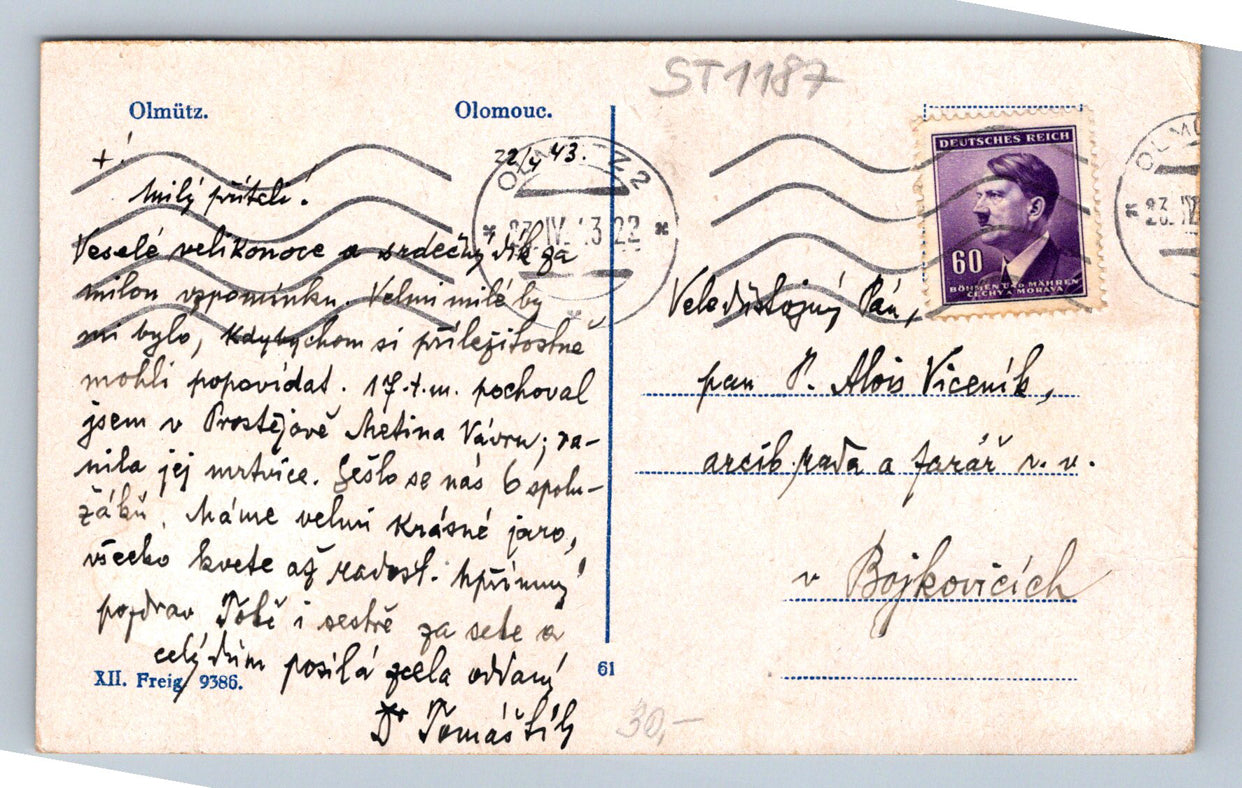 ST1187
Olmütz.
Olomouc.
+
22/4 43.
Milý příteli!
Veselé velikonoce a srdečný dík za
milou vzpomínku. Velmi milé by
mi bylo, kdybychom si příležitostně
mohli popovídat. 17.t.m. pochoval
jsem v Prostějově Metina Vávru; ra-
nila jej mrtvice. Sešlo se nás 6 spolu-
žáků. Máme velmi krásné jaro,
všecko kvete až radost. Upřímný
pozdrav Tobě i sestře za sebe a
celý dům posílá zcela oddaný
Dr Tomáštík
XII. Freig. 9386.
61
30,-
OLMÜTZ 2
23. IV. 43 22
DEUTSCHES REICH
60
BÖHMEN UND MÄHREN
ČECHY A MORAVA
OLMÜ
23. IV
Veledůstojný Pán,
pan P. Alois Viceník,
arcib. rada a farář v. v.
v Bojkovicích